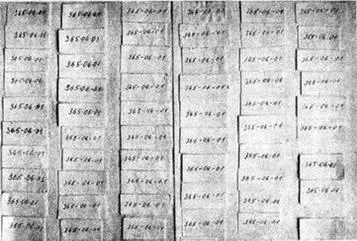 365-06-01 365-06-01 365-06-01 365-06-01 365-06-01 365-06-01
365-06-01 365-06-01 365-06-01 365-06-01 365-06-01 365-06-01
365-06-01 365-06-01 365-06-01 365-06-01 365-06-01 365-06-01
365-06-01 365-06-01 365-06-01 365-06-01 365-06-01 365-06-01
365-06-01 365-06-01 365-06-01 365-06-01 365-06-01 365-06-01
365-06-01 365-06-01 365-06-01 365-06-01 365-06-01 365-06-01
365-06-01 365-06-01 365-06-01 365-06-01 365-06-01 365-06-01
365-06-01 365-06-01 365-06-01 365-06-01 365-06-01 365-06-01
365-06-01 365-06-01 365-06-01 365-06-01 365-06-01
365-06-01 365-06-01 365-06-01 365-06-01 365-06-01